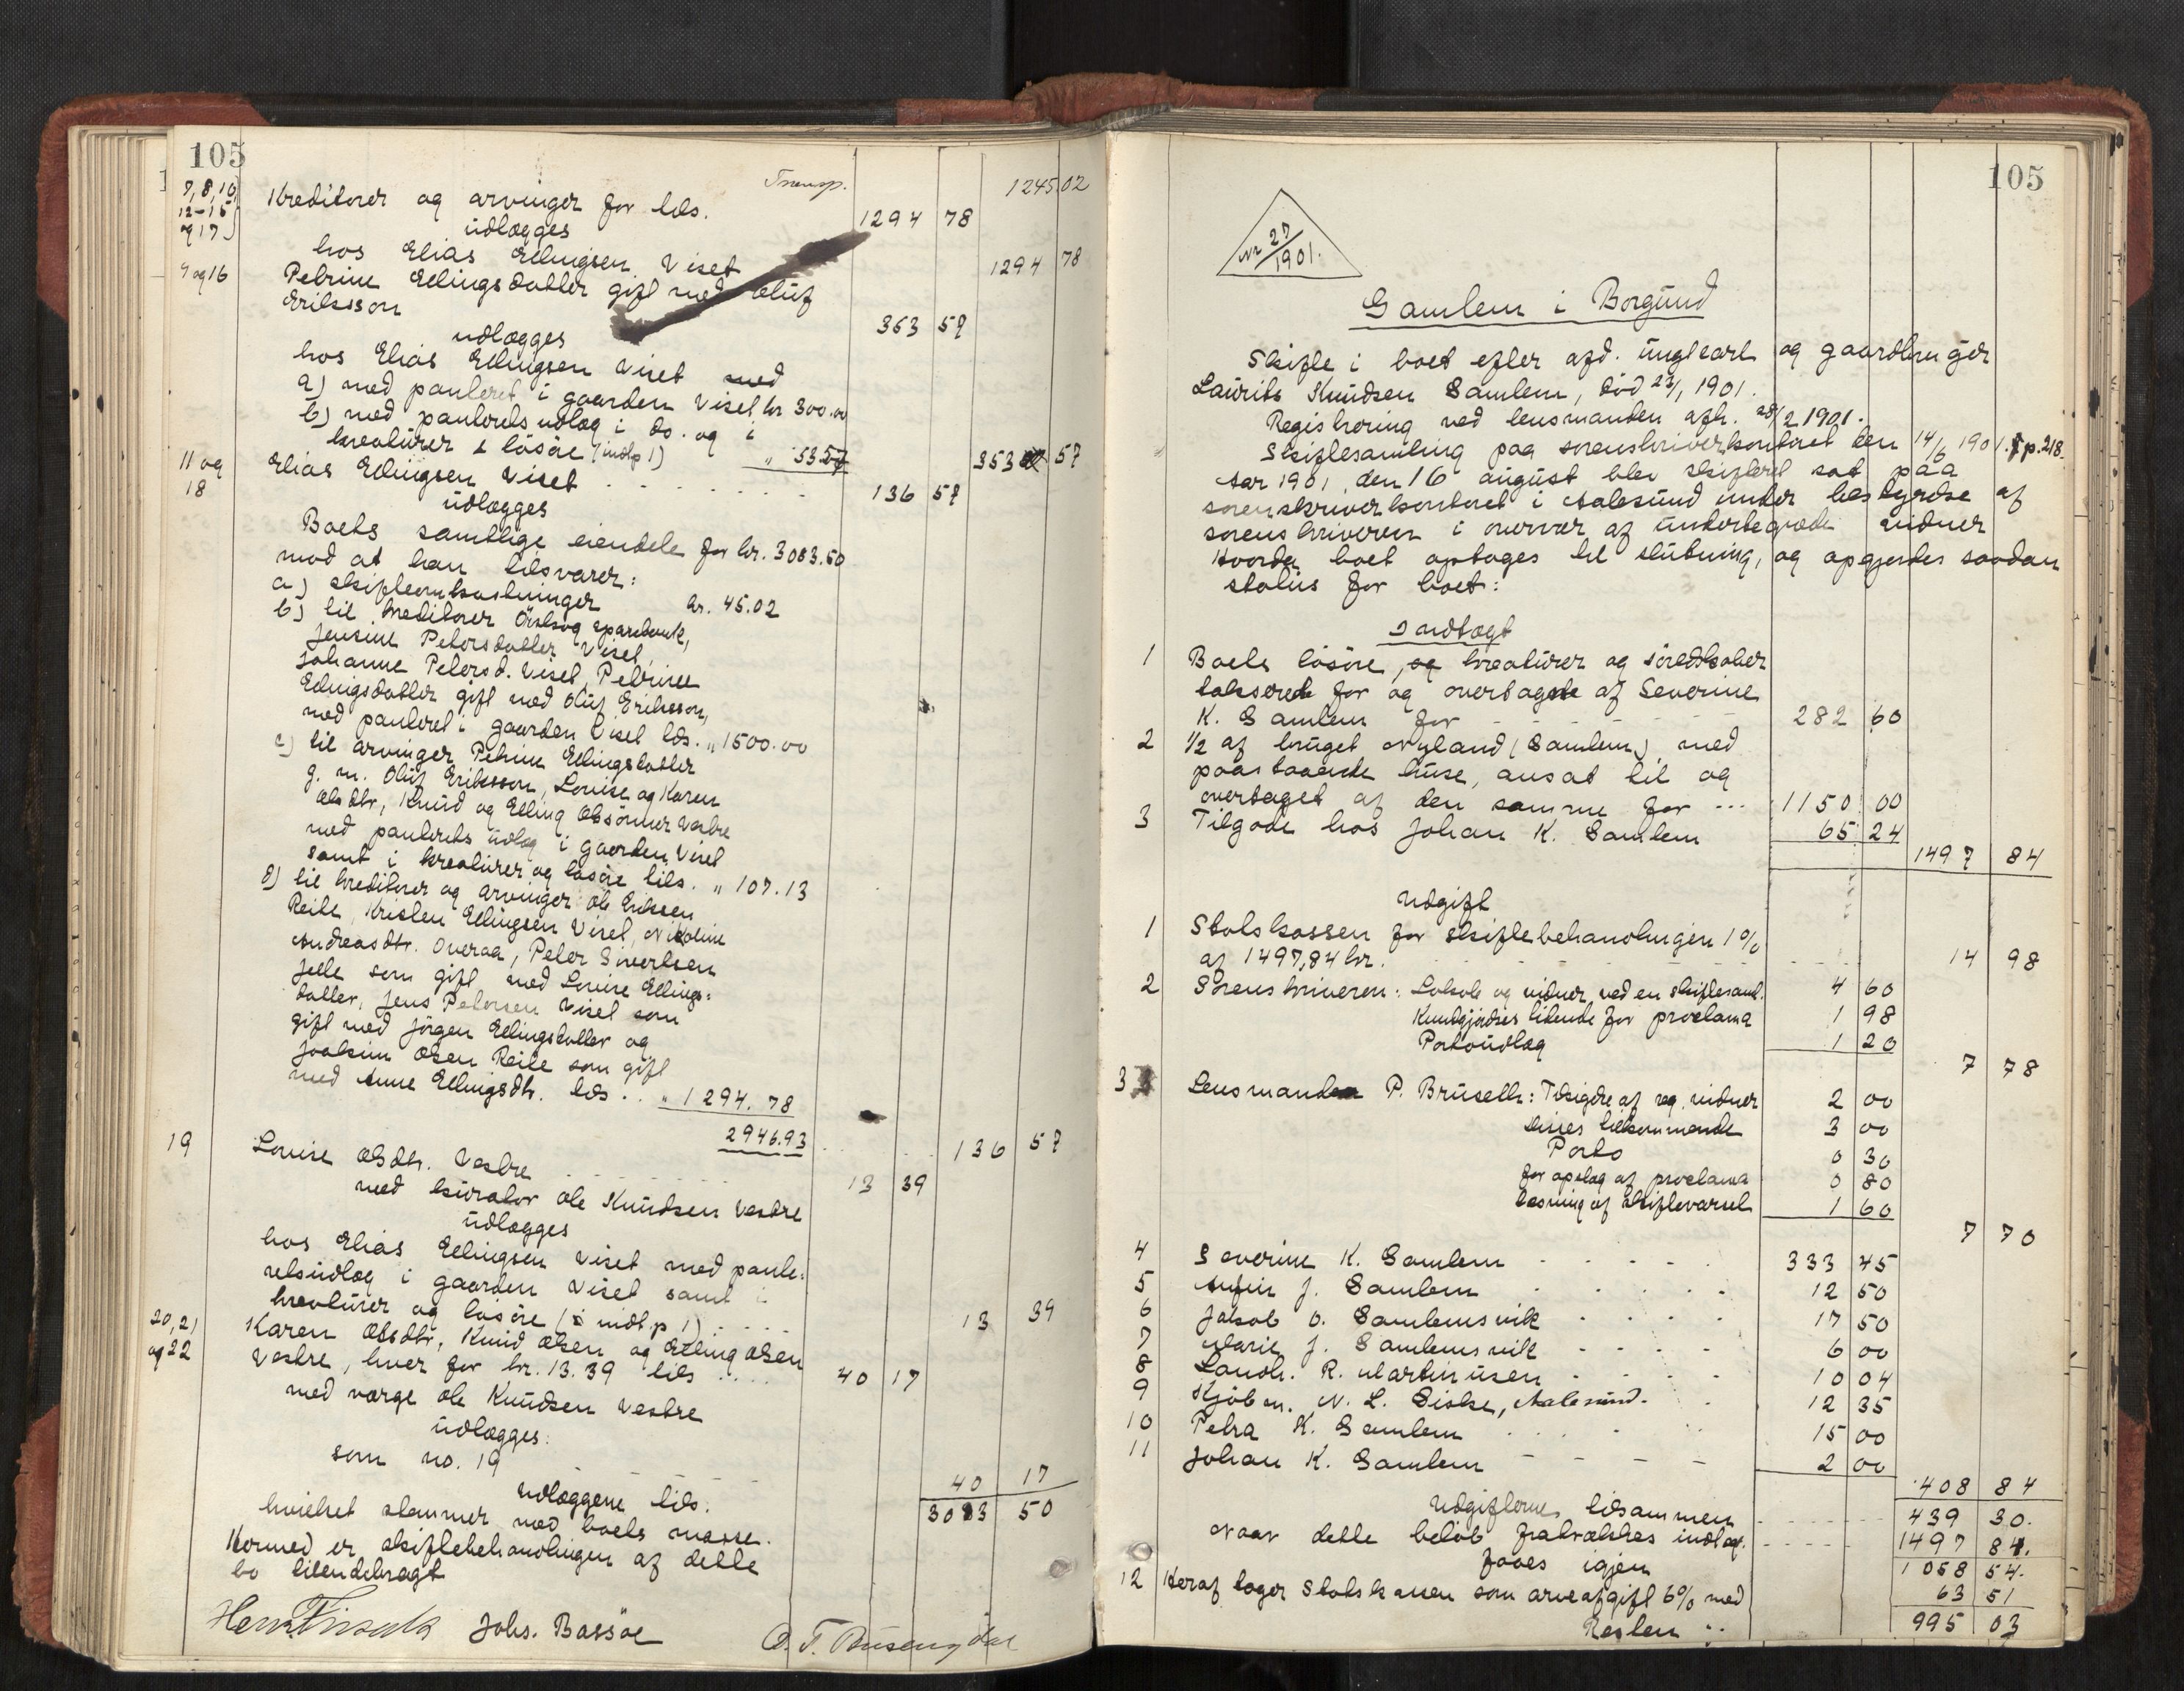 105
Transp. 1245.02
7, 8, 10, 12-15 og 17) Kreditorer og arvinger for tils. 1294 78
udlægges
hos Elias Ellingsen Viset 1294 78
9 og 16 Petrine Ellingsdatter gift med Oluf
Eriksson 363 57
udlægges
hos Elias Ellingsen Viset med
a) med panteret i gaarden Viset kr. 300.00
b) med panterets udlæg i do. og i
kreatürer & løsøre (indtp 1) " 53.57 353 57
11 og 18 Elias Ellingsen Viset 136 57
udlægges
Boets samtlige eiendele for kr. 3083.50
mod at han tilsvarer:
a) skifteomkostninger kr. 45.02
b) til kreditorer Örskog sparebank,
Jensine Petersdatter Viset,
Johanne Petersd. Viset, Petrine
Ellingsdatter gift med Oluf Eriksson,
med panteret i gaarden Viset tils. " 1500.00
c) til arvinger Petrine Ellingsdatter
g. m. Oluf Eriksson, Louise og Karen
Olsdtr, Knud og Elling Olssønner Vestre
med panterets udlæg i gaarden Viset
samt i kreatürer og løsøre tils. " 107.13
d) til kreditorer og arvinger Ole Eriksen
Reite, Kristen Ellingsen Viset, Nikoline
Andreasdtr. Overaa, Peter Sivertsen
Jelle som gift med Louise Ellings=
datter, Jens Petersen Viset som
gift med Jørgen Ellingsdatter og
Joakim Olsen Reite som gift
med Anne Ellingsdtr. tils .. " 1294.78
2946.93 136 57
19 Louise Olsdtr. Vestre 13 39
med kürator Ole Knudsen Vestre
udlægges
hos Elias Ellingsen Viset med pante=
retsudlæg i gaarden Viset samt i
kreatürer og løsøre (indt.p 1) 13 39
20, 21 og 22 Karen Olsdtr, Knud Olsen og Elling Olsen
Vestre, hver for kr. 13.39 tils .... 40 17
med værge Ole Knudsen Vestre
udlægges:
som no. 19 40 17
Udlæggene tils. 3083 50
hvilket stemmer med boets masse.
Hermed er skiftebehandlingen af dette
bo tilendebragt
Johs. Bassöe
105
Nr 27/1901.
Gamlem i Borgund
Skifte i boet efter afd. ungkarl og gaardbruger
Laurits Knudsen Gamlem, død 23/1 1901.
Registrering ved lensmanden afh. 28/2 1901.
Skiftesamling paa sorenskriverkontoret den 14/6 1901. p. 218.
Aar 1901, den 16 august blev skifteret sat paa
sorenskriverkontoret i Aalesund under bestyrelse af
sorenskriveren i overvær af undertegnede vidner
Hvorda boet optages til slutning, og opgjordes saadan
status for boet:
Indtægt
1 Boets løsøre, og kreatürer og søredskaber
takserede for og overtagede af Severine
K. Gamlem for 282 60
2 1/2 af bruget Nyland (Gamlem) med
paastaaende huse, ansat til og
overtaget af den samme for ... 1150 00
3 Tilgode hos Johan K. Gamlem 65 24
1497 84
Udgift
1 Statskassen for skiftebehandlingen 1 %
af 1497,84 kr. 14 98
2 Sorenskriveren: Lokale og vidner ved en skiftesaml. 4 60
Kundgjørelses tidende for proclama 1 98
Portoudlæg 1 20
7 78
3 Lensmanden P. Brüsells: Tilsigelse af reg. vidner 2 00
disses tilkommende 3 00
Porto 0 30
for opslag af proclama 0 80
læsning af skiftevarsel 1 60
7 70
4 Severine K. Gamlem 333 45
5 Anfin J. Gamlem 12 50
6 Jakob O. Gamlemsvik 17 50
7 Marie J. Gamlemsvik 6 00
8 Landh. R. Martinusen 10 04
9 Kjöbm. N. L. Giske, Aalesund. 12 35
10 Petra K. Gamlem 15 00
11 Johan K. Gamlem 2 00
408 84
Udgifterne tilsammen 439 30.
Naar dette beløb fratrækkes indtæg. 1497 84.
faaes igjen 1058 54.
12 Heraf tager Statskassen som arveafgift 6% med 63 51
Resten : 995 03